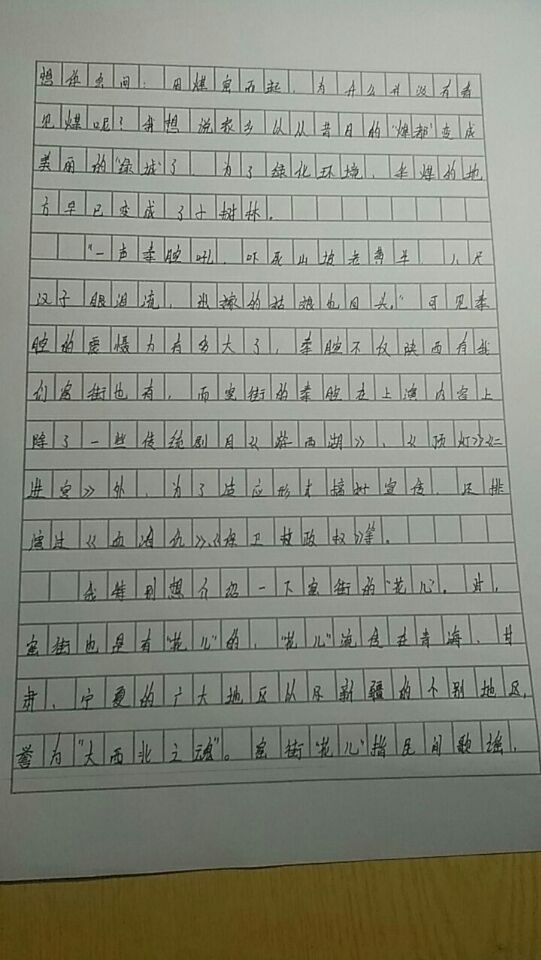 想你会问：因煤窑而起，为什么并没有看
见煤呢？我想说家乡以从昔日的“煤都”变成
美丽的“绿城”了，为了绿化环境，半煤的地
方早已变成了小树林。
“一声秦腔吼，吓死山坡老黄羊，八尺
汉子眼泪流，出嫁的姑娘也回头。”可见秦
腔的震慑力有多大了，秦腔不仅陕西有我
们窑街也有，而窑街的秦腔在上演内容上
除了一些传统剧目《游西湖》、《顶灯》《二
进宫》外，为了适应形才搞好宣传，还排
演过《血泪仇》、《保卫村政权》等。
我特别想介绍一下窑街的“花儿”。对，
窑街也是有“花儿”的，“花儿”流传在青海、甘
肃、宁夏的广大地区以及新疆的个别地区，
誉为“大西北之魂”。窑街“花儿”指民间歌谣，